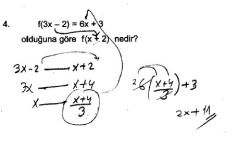 4. f(3x − 2) = 6x + 3
olduğuna göre f(x + 2) nedir?
3x-2 — x+2
3x — x+4
x — (x+4)/3
²6((x+4)/3)+3
2x+11